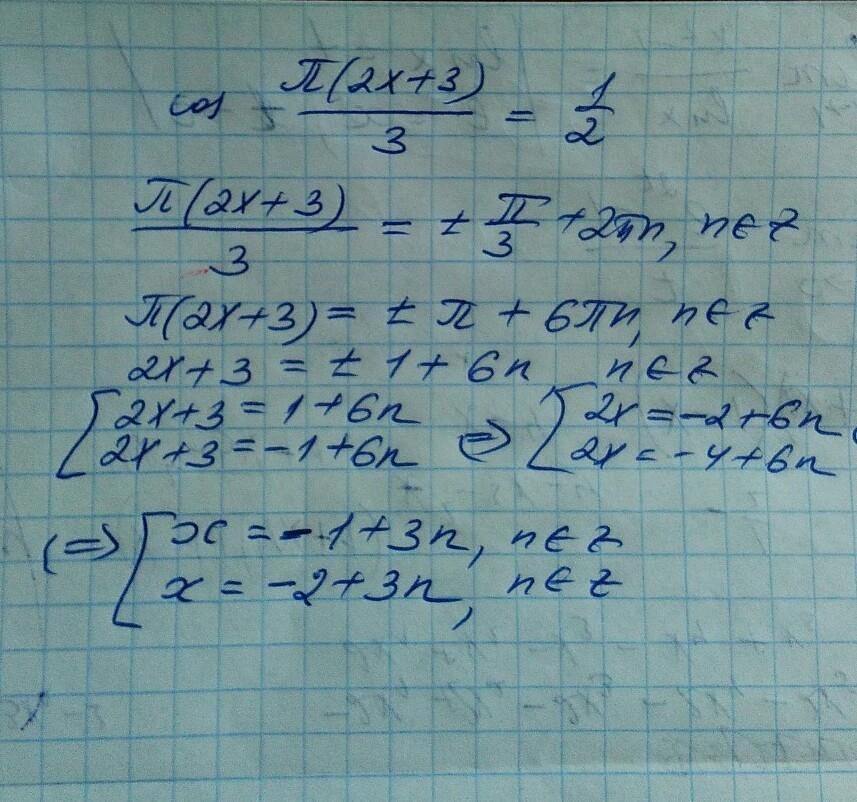 cos π(2x+3)/3 = 1/2
π(2x+3)/3 = ± π/3 + 2πn, n∈Z
π(2x+3) = ± π + 6πn, n∈Z
2x+3 = ± 1 + 6n n∈Z
[2x+3 = 1+6n ⇔ [2x = -2+6n
2x+3 = -1+6n 2x = -4+6n
⇔ [x = -1+3n, n∈Z
x = -2+3n, n∈Z